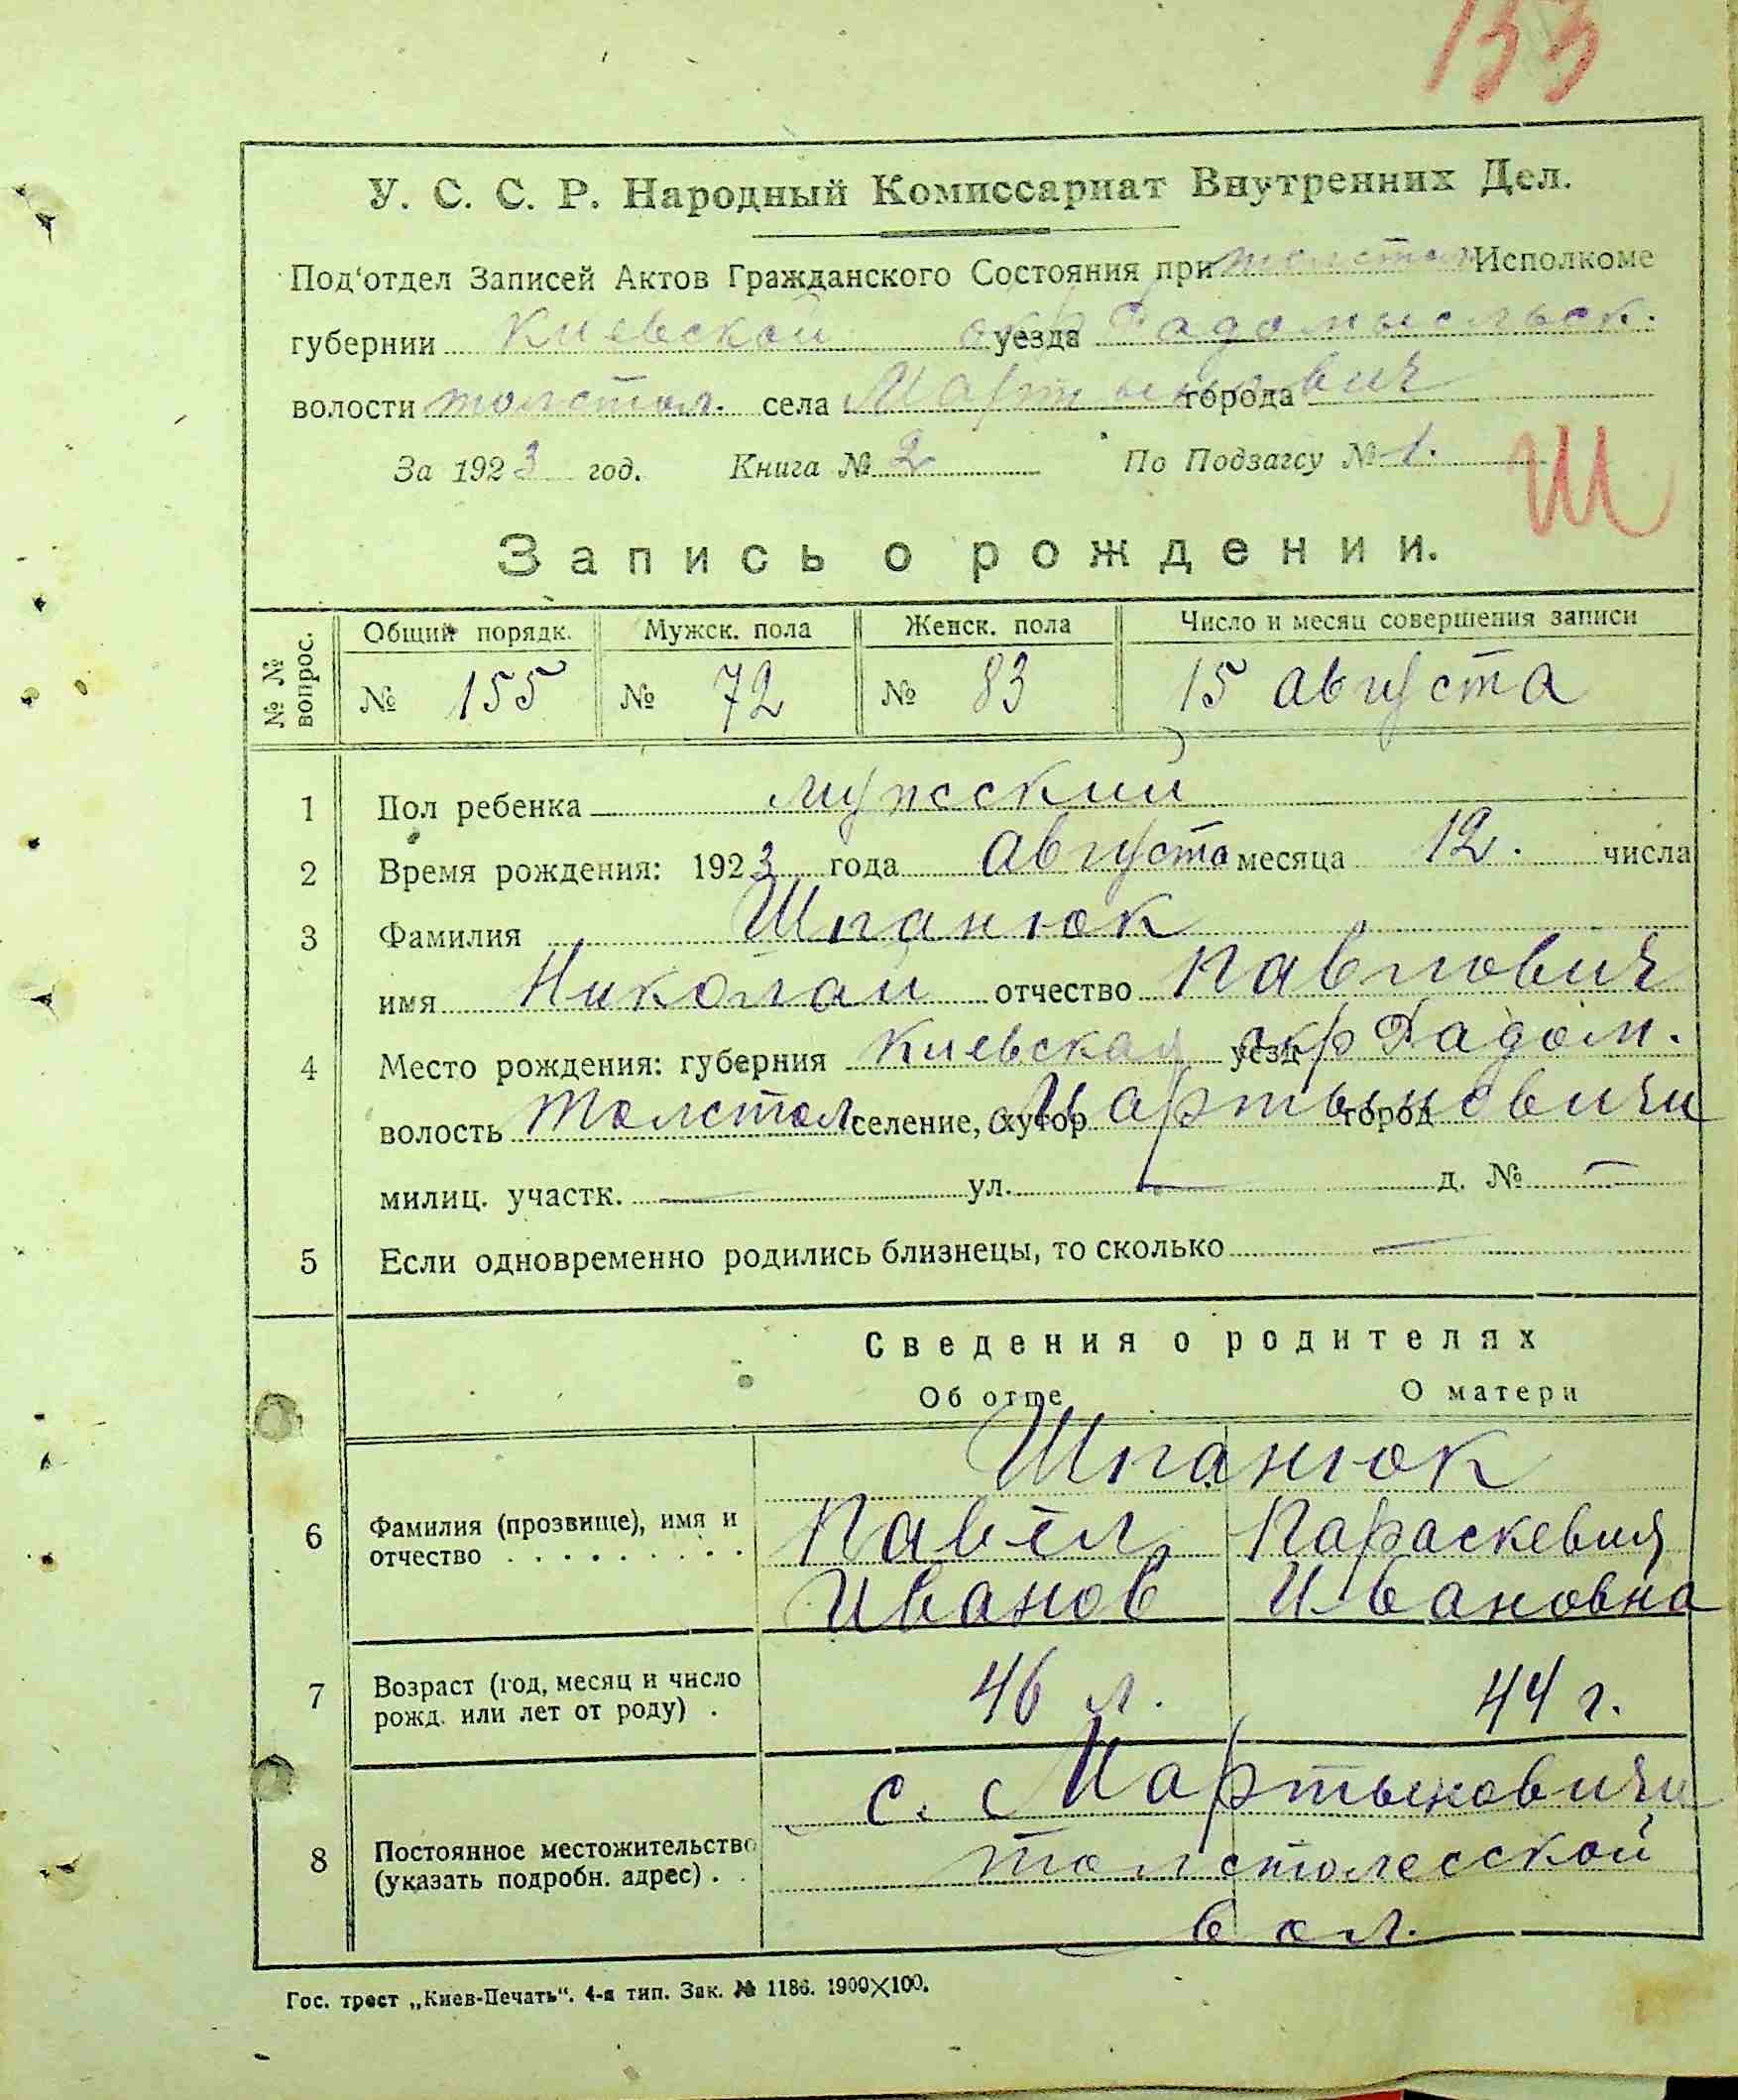 133
У. С. С. Р. Народный Комиссариат Внутренних Дел.
Под'отдел Записей Актов Гражданского Состояния при толстол Исполкоме
губернии Киевской окр уезда Радомысльск.
волости толстол. села Мартынович города
За 1923 год. Книга № 2 По Подзагсу № 1.
Ш
Запись о рождении.
№ № вопрос. Общий порядк. Мужск. пола Женск. пола Число и месяц совершения записи
№ 155 № 72 № 83 15 августа
1 Пол ребенка мужской
2 Время рождения: 1923 года августа месяца 12. числа
3 Фамилия Шпанюк
имя Николай отчество Павлович
4 Место рождения: губерния Киевская уезд окр Радом.
волость Толстол селение, хутор с Мартыновичи город
милиц. участк. — ул. — д. № —
5 Если одновременно родились близнецы, то сколько —
Сведения о родителях
Об отце О матери
Шпанюк
6 Фамилия (прозвище), имя и отчество . . . . . . . . . Павел Параскевия
Иванов Ивановна
7 Возраст (год, месяц и число рожд. или лет от роду) . 46 л. 44 г.
с. Мартыновичи
8 Постоянное местожительство (указать подробн. адрес) . . толстолесской
вол.
Гос. трест „Киев-Печать“. 4-я тип. Зак. № 1186. 1900×100.